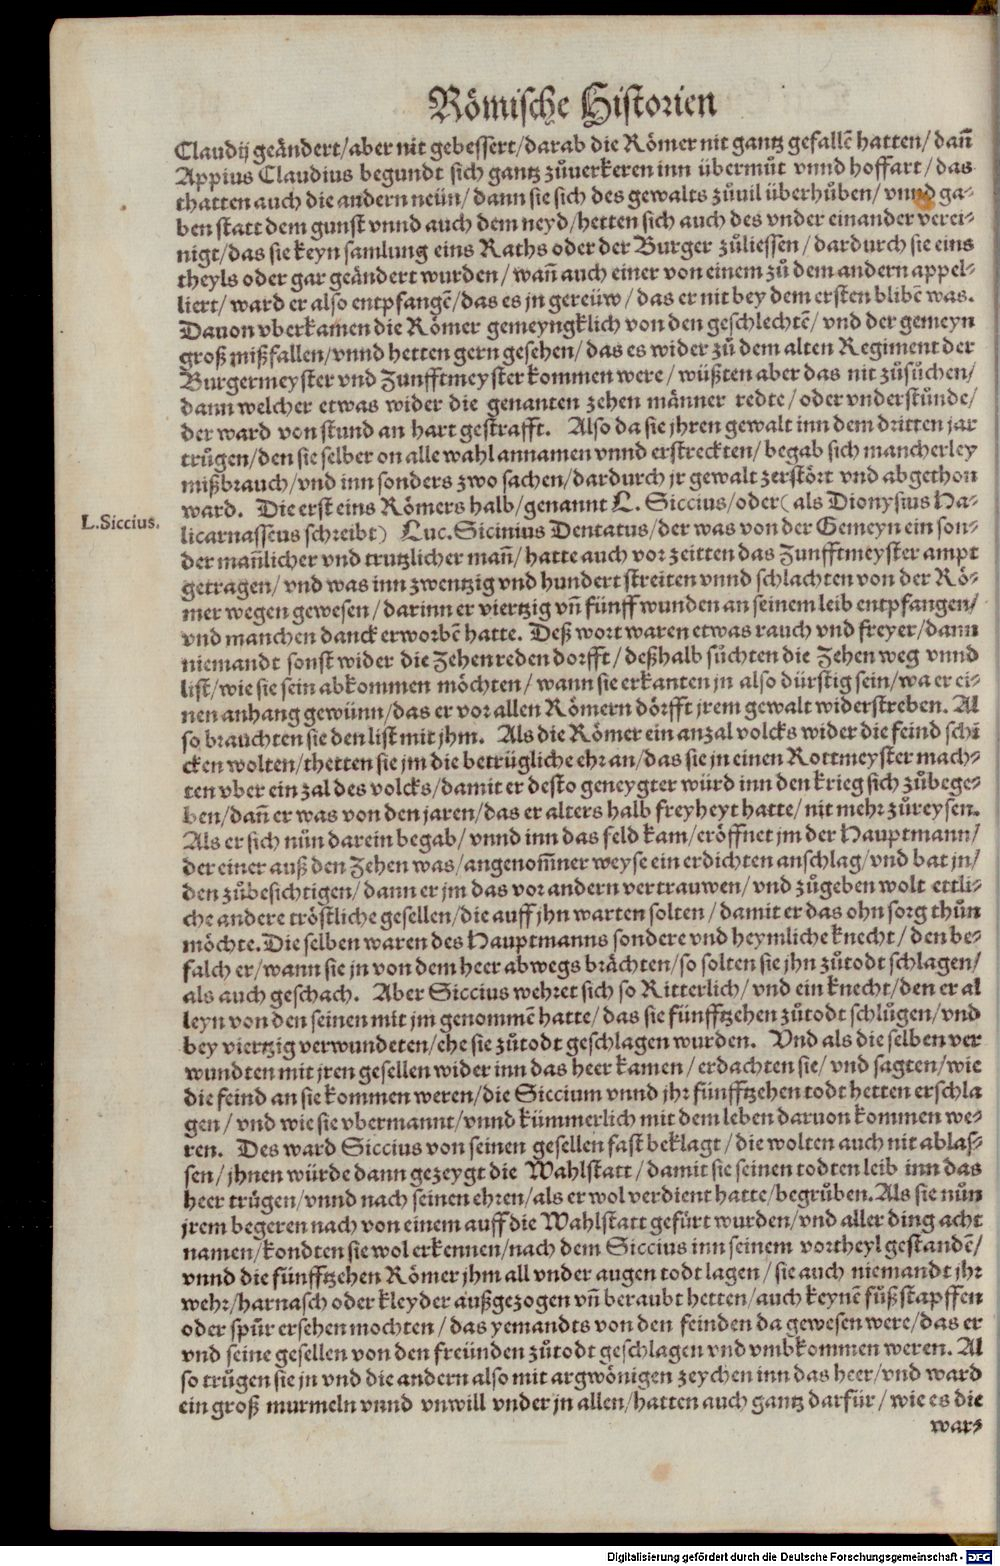 Römische Historien
Claudij geändert/aber nit gebessert/darab die Römer nit gantz gefallẽ hatten/dañ
Appius Claudius begundt sich gantz zůuerkeren inn übermůt vnnd hoffart/das
thatten auch die andern neün/dann sie sich des gewalts zůuil überhůben/vnnd ga-
ben statt dem gunst vnnd auch dem neyd/hetten sich auch des vnder einander verei-
nigt/das sie keyn samlung eins Raths oder der Burger zůliessen/dardurch sie eins
theyls oder gar geändert wurden/wañ auch einer von einem zů dem andern appel-
liert/ward er also entpfangẽ/das es jn gereüw/das er nit bey dem ersten blibẽ was.
Dauon vberkamen die Römer gemeyngklich von den geschlechtẽ/vnd der gemeyn
groß mißfallen/vnnd hetten gern gesehen/das es wider zů dem alten Regiment der
Burgermeyster vnd Zunfftmeyster kommen were/wüßten aber das nit zůsůchen/
dann welcher etwas wider die genanten zehen männer redte/oder vnderstůnde/
der ward von stund an hart gestrafft. Also da sie jhren gewalt inn dem dritten jar
trůgen/den sie selber on alle wahl annamen vnnd erstreckten/begab sich mancherley
mißbrauch/vnd inn sonders zwo sachen/dardurch jr gewalt zerstört vnd abgethon
ward. Die erst eins Römers halb/genannt L. Siccius/oder (als Dionysius Ha-
L.Siccius.
licarnasseus schreibt) Luc. Sicinius Dentatus/der was von der Gemeyn ein son-
der mañlicher vnd trutzlicher mañ/hatte auch vor zeitten das Zunfftmeyster ampt
getragen/vnd was inn zwentzig vnd hundert streiten vnnd schlachten von der Rö-
mer wegen gewesen/darinn er viertzig vñ fünff wunden an seinem leib entpfangen/
vnd manchen danck erworbẽ hatte. Deß wort waren etwas rauch vnd freyer/dann
niemandt sonst wider die Zehen reden dorfft/deßhalb sůchten die Zehen weg vnnd
list/wie sie sein abkommen möchten/wann sie erkanten jn also dürstig sein/wa er ei-
nen anhang gewünn/das er vor allen Römern dörfft jrem gewalt widerstreben. Al
so brauchten sie den list mit jhm. Als die Römer ein anzal volcks wider die feind schi
cken wolten/thetten sie jm die betrügliche ehr an/das sie jn einen Rottmeyster mach-
ten vber ein zal des volcks/damit er desto geneygter würd inn den krieg sich zůbege-
ben/dañ er was von den jaren/das er alters halb freyheyt hatte/nit mehr zůreysen.
Als er sich nůn darein begab/vnnd inn das feld kam/eröffnet jm der Hauptmann/
der einer auß den Zehen was/angenom̃ner weyse ein erdichten anschlag/vnd bat jn/
den zůbesichtigen/dann er jm das vor andern vertrauwen/vnd zůgeben wolt ettli-
che andere tröstliche gesellen/die auff jhn warten solten/damit er das ohn sorg thůn
möchte. Die selben waren des Hauptmanns sondere vnd heymliche knecht/den be-
falch er/wann sie jn von dem heer abwegs brächten/so solten sie jhn zůtodt schlagen/
als auch geschach. Aber Siccius wehret sich so Ritterlich/vnd ein knecht/den er al
leyn von den seinen mit jm genommẽ hatte/das sie fünfftzehen zůtodt schlůgen/vnd
bey viertzig verwundeten/ehe sie zůtodt geschlagen wurden. Vnd als die selben ver
wundten mit jren gesellen wider inn das heer kamen/erdachten sie/vnd sagten/wie
die feind an sie kommen weren/die Siccium vnnd jhr fünfftzehen todt hetten erschla
gen/vnd wie sie vbermannt/vnnd kümmerlich mit dem leben daruon kommen we-
ren. Des ward Siccius von seinen gesellen fast beklagt/die wolten auch nit ablas-
sen/jhnen würde dann gezeygt die Wahlstatt/damit sie seinen todten leib inn das
heer trůgen/vnnd nach seinen ehren/als er wol verdient hatte/begrůben. Als sie nůn
jrem begeren nach von einem auff die Wahlstatt gefürt wurden/vnd aller ding acht
namen/kondten sie wol erkennen/nach dem Siccius inn seinem vortheyl gestandẽ/
vnnd die fünfftzehen Römer jhm all vnder augen todt lagen/sie auch niemandt jhr
wehr/harnasch oder kleyder außgezogen vñ beraubt hetten/auch keynẽ fůßstapffen
oder spůr ersehen mochten/das yemandts von den feinden da gewesen were/das er
vnd seine gesellen von den freünden zůtodt geschlagen vnd vmbkommen weren. Al
so trůgen sie jn vnd die andern also mit argwönigen zeychen inn das heer/vnd ward
ein groß murmeln vnnd vnwill vnder jn allen/hatten auch gantz darfür/wie es die
war-
Digitalisierung gefördert durch die Deutsche Forschungsgemeinschaft - DFG